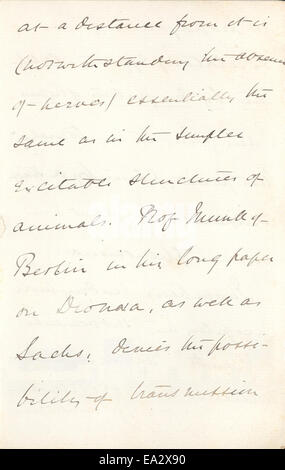 at a distance from it is
(notwithstanding the absence
of nerves) essentially the
same as in the simpler
excitable structures of
animals. Prof Munk of
Berlin in his long paper
on Dionaea, as well as
Sachs, denies the possi-
bility of transmission
alamy
EA2X90
www.alamy.com